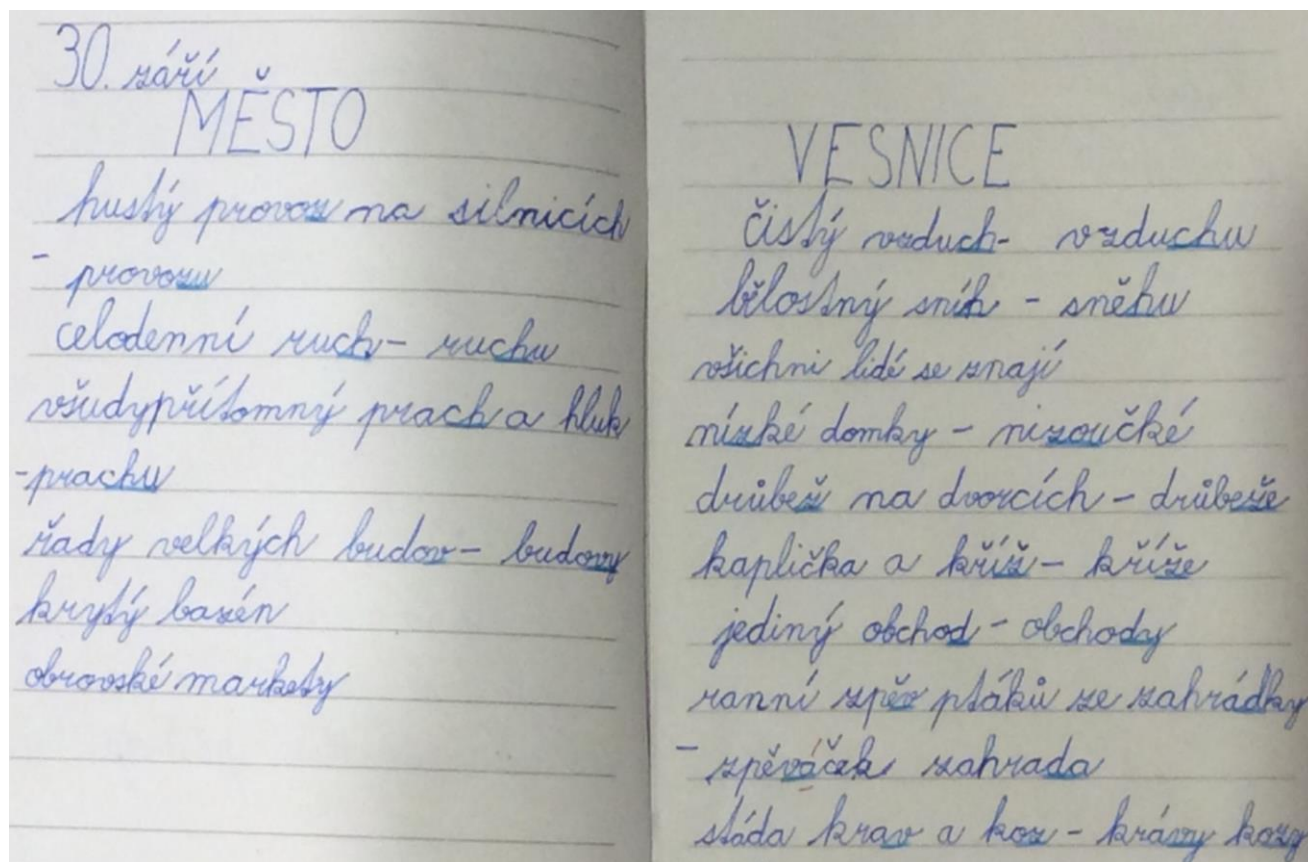 30. září
MĚSTO
hustý provoz na silnicích
- provozu
celodenní ruch - ruchu
všudypřítomný prach a hluk
- prachu
řady velkých budov - budovy
krytý bazén
obrovské markety
VESNICE
čistý vzduch - vzduchu
bělostný sníh - sněhu
všichni lidé se znají
nízké domky - nizoučké
drůbež na dvorcích - drůbeže
kaplička a kříž - kříže
jediný obchod - obchody
ranní zpěv ptáků ze zahrádky
- zpěváček zahrada
stáda krav a koz - krávy kozy